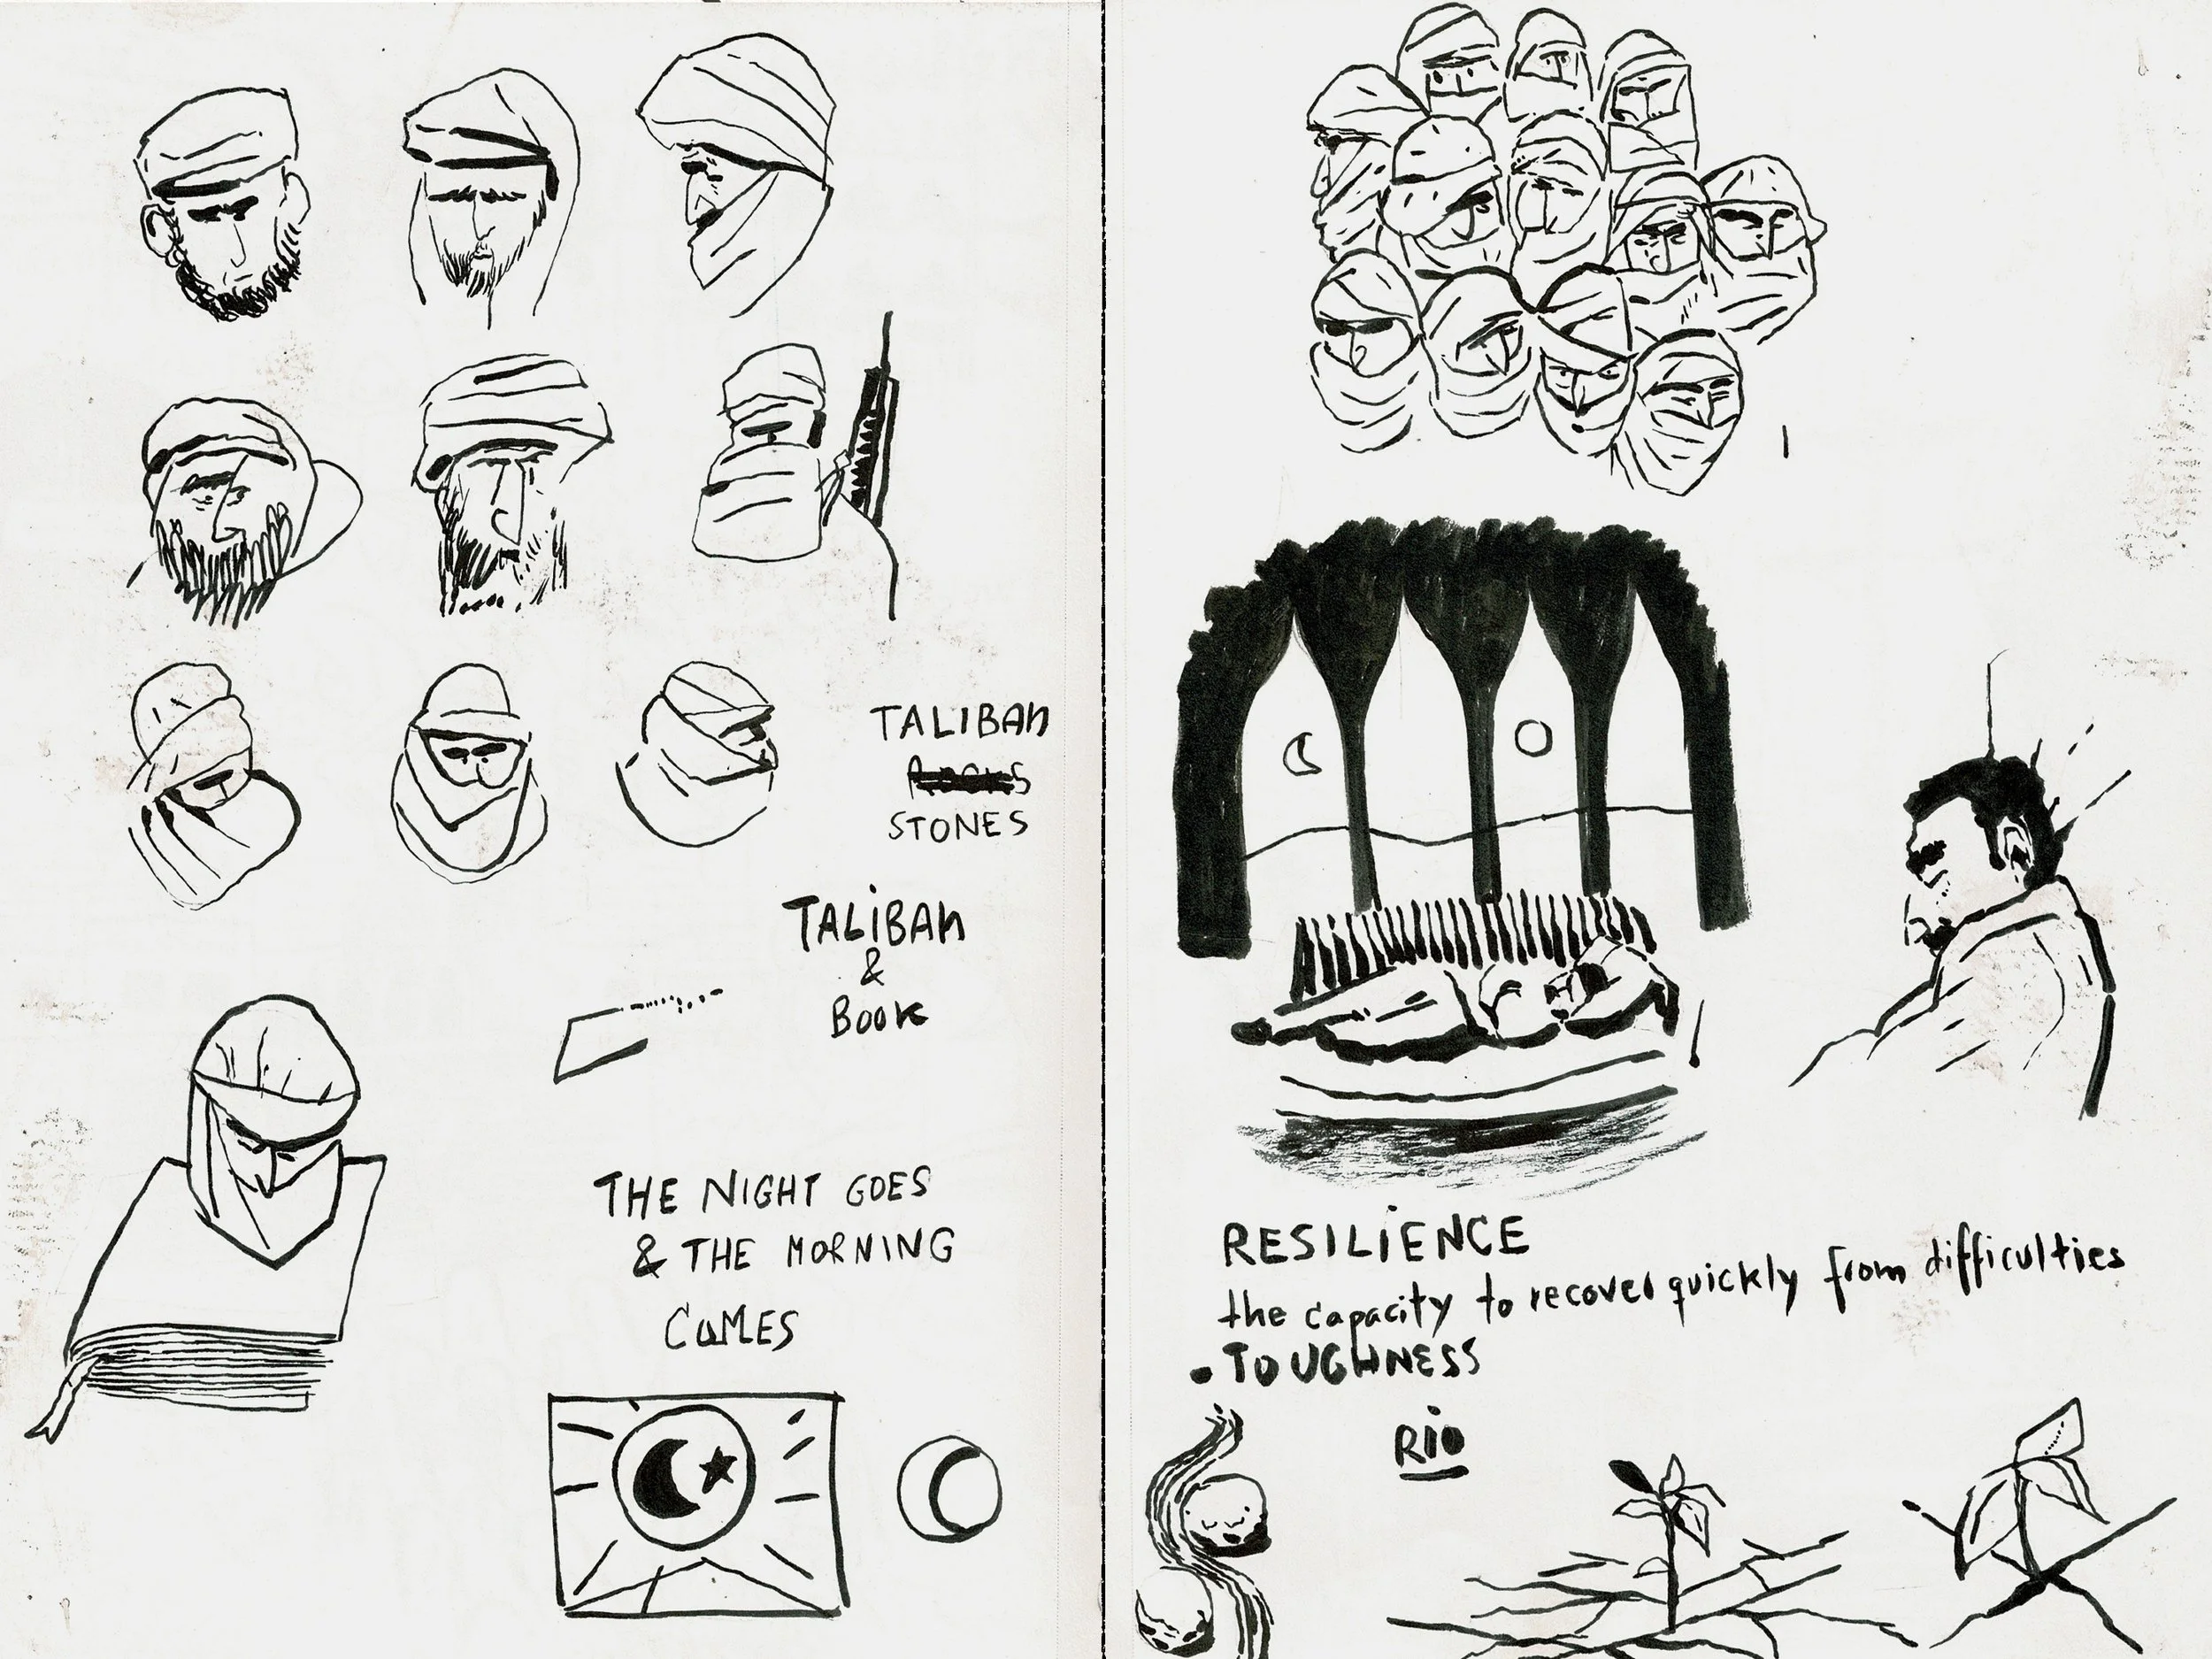 TALIBAN
ROCKS
STONES
TALIBAN
&
BOOK
THE NIGHT GOES
& THE MORNING
COMES
RESILIENCE
the capacity to recover quickly from difficulties
• TOUGHNESS
RIO